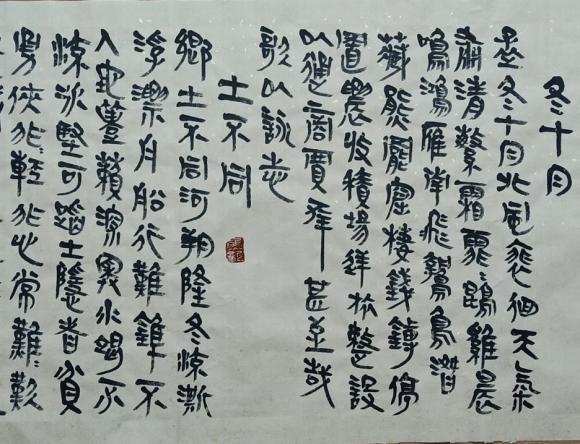 冬十月
孟冬十月北風徘徊天氣
肅清繁霜霏霏鵾雞晨
鳴鴻雁南飛鷙鳥潛
藏熊羆窟棲錢鎛停
置農收積場逆旅整設
以通商賈幸甚至哉
歌以詠志
土不同
鄉土不同河朔隆冬流澌
浮漂舟船行難錐不
入地蘴藾深奧水竭不
流冰堅可蹈士隱者貧
勇俠輕非心常難歎